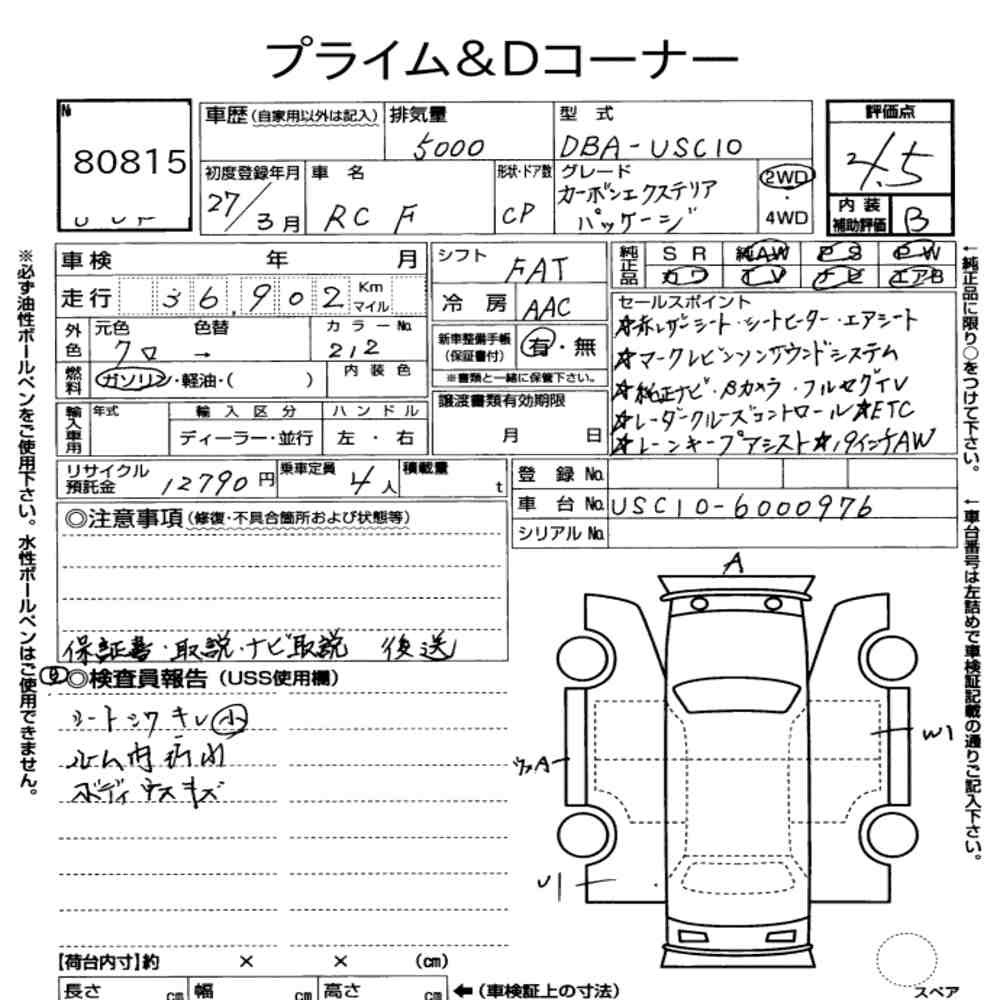 プライム&Dコーナー
№
80815
車歴 (自家用以外は記入)
排気量
5000
型式
DBA-USC10
評価点
4.5
初度登録年月
27/3月
車名
RC F
形状・ドア数
CP
グレード
カーボンエクステリア
パッケージ
2WD
・
4WD
内装
補助評価
B
車検 年 月
シフト
FAT
純正品
SR 純AW PS PW
カワ TV ナビ エアB
走行 36,902 Km
マイル
冷房 AAC
セールスポイント
☆赤レザーシート・シートヒーター・エアシート
☆マークレビンソンサウンドシステム
☆純正ナビ・Bカメラ・フルセグTV
☆レーダークルーズコントロール☆ETC
☆レーンキープアシスト☆19インチAW
外色
元色 色替
クロ →
カラーNo.
212
新車整備手帳
(保証書付)
有・無
※書類と一緒に保管下さい。
燃料
ガソリン・軽油・( )
内装色
譲渡書類有効期限
月 日
輸入車用
年式
輸入区分
ディーラー・並行
ハンドル
左・右
リサイクル
預託金
12790円
乗車定員
4人
積載量
t
登録No.
車台No. USC10-6000976
シリアルNo.
◎注意事項 (修復・不具合箇所および状態等)
保証書・取説・ナビ取説 後送
◎検査員報告 (USS使用欄)
シートシワキレ小
ルーム内汚れ
ボディウスキズ
A
W1
A
U1
【荷台内寸】約 × × (cm)
長さ cm 幅 cm 高さ cm
←(車検証上の寸法)
スペア
※必ず油性ボールペンをご使用下さい。水性ボールペンはご使用できません。
←純正品に限り○をつけて下さい。
←車台番号は左詰めで車検証記載の通りご記入下さい。